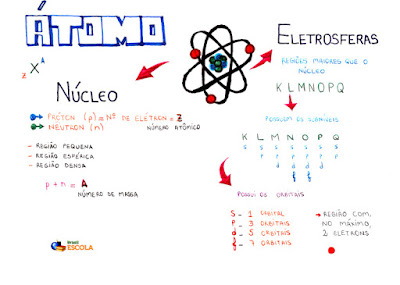 ÁTOMO
A
X
Z
NÚCLEO
PRÓTON (p) = Nº DE ELÉTRON = Z
NEUTRON (n) NÚMERO ATÔMICO
- REGIÃO PEQUENA
- REGIÃO ESFÉRICA
- REGIÃO DENSA
p + n = A
NÚMERO DE MASSA
Brasil
ESCOLA
ELETROSFERAS
REGIÕES MAIORES QUE O
NÚCLEO
K L M N O P Q
POSSUEM OS SUBNÍVEIS
K L M N O P Q
s s s s s s s
p p p p p
d d d d
f f
POSSUI OS ORBITAIS
S - 1 ORBITAL
P - 3 ORBITAIS
d - 5 ORBITAIS
f - 7 ORBITAIS
→ REGIÃO COM,
NO MÁXIMO,
2 ELÉTRONS